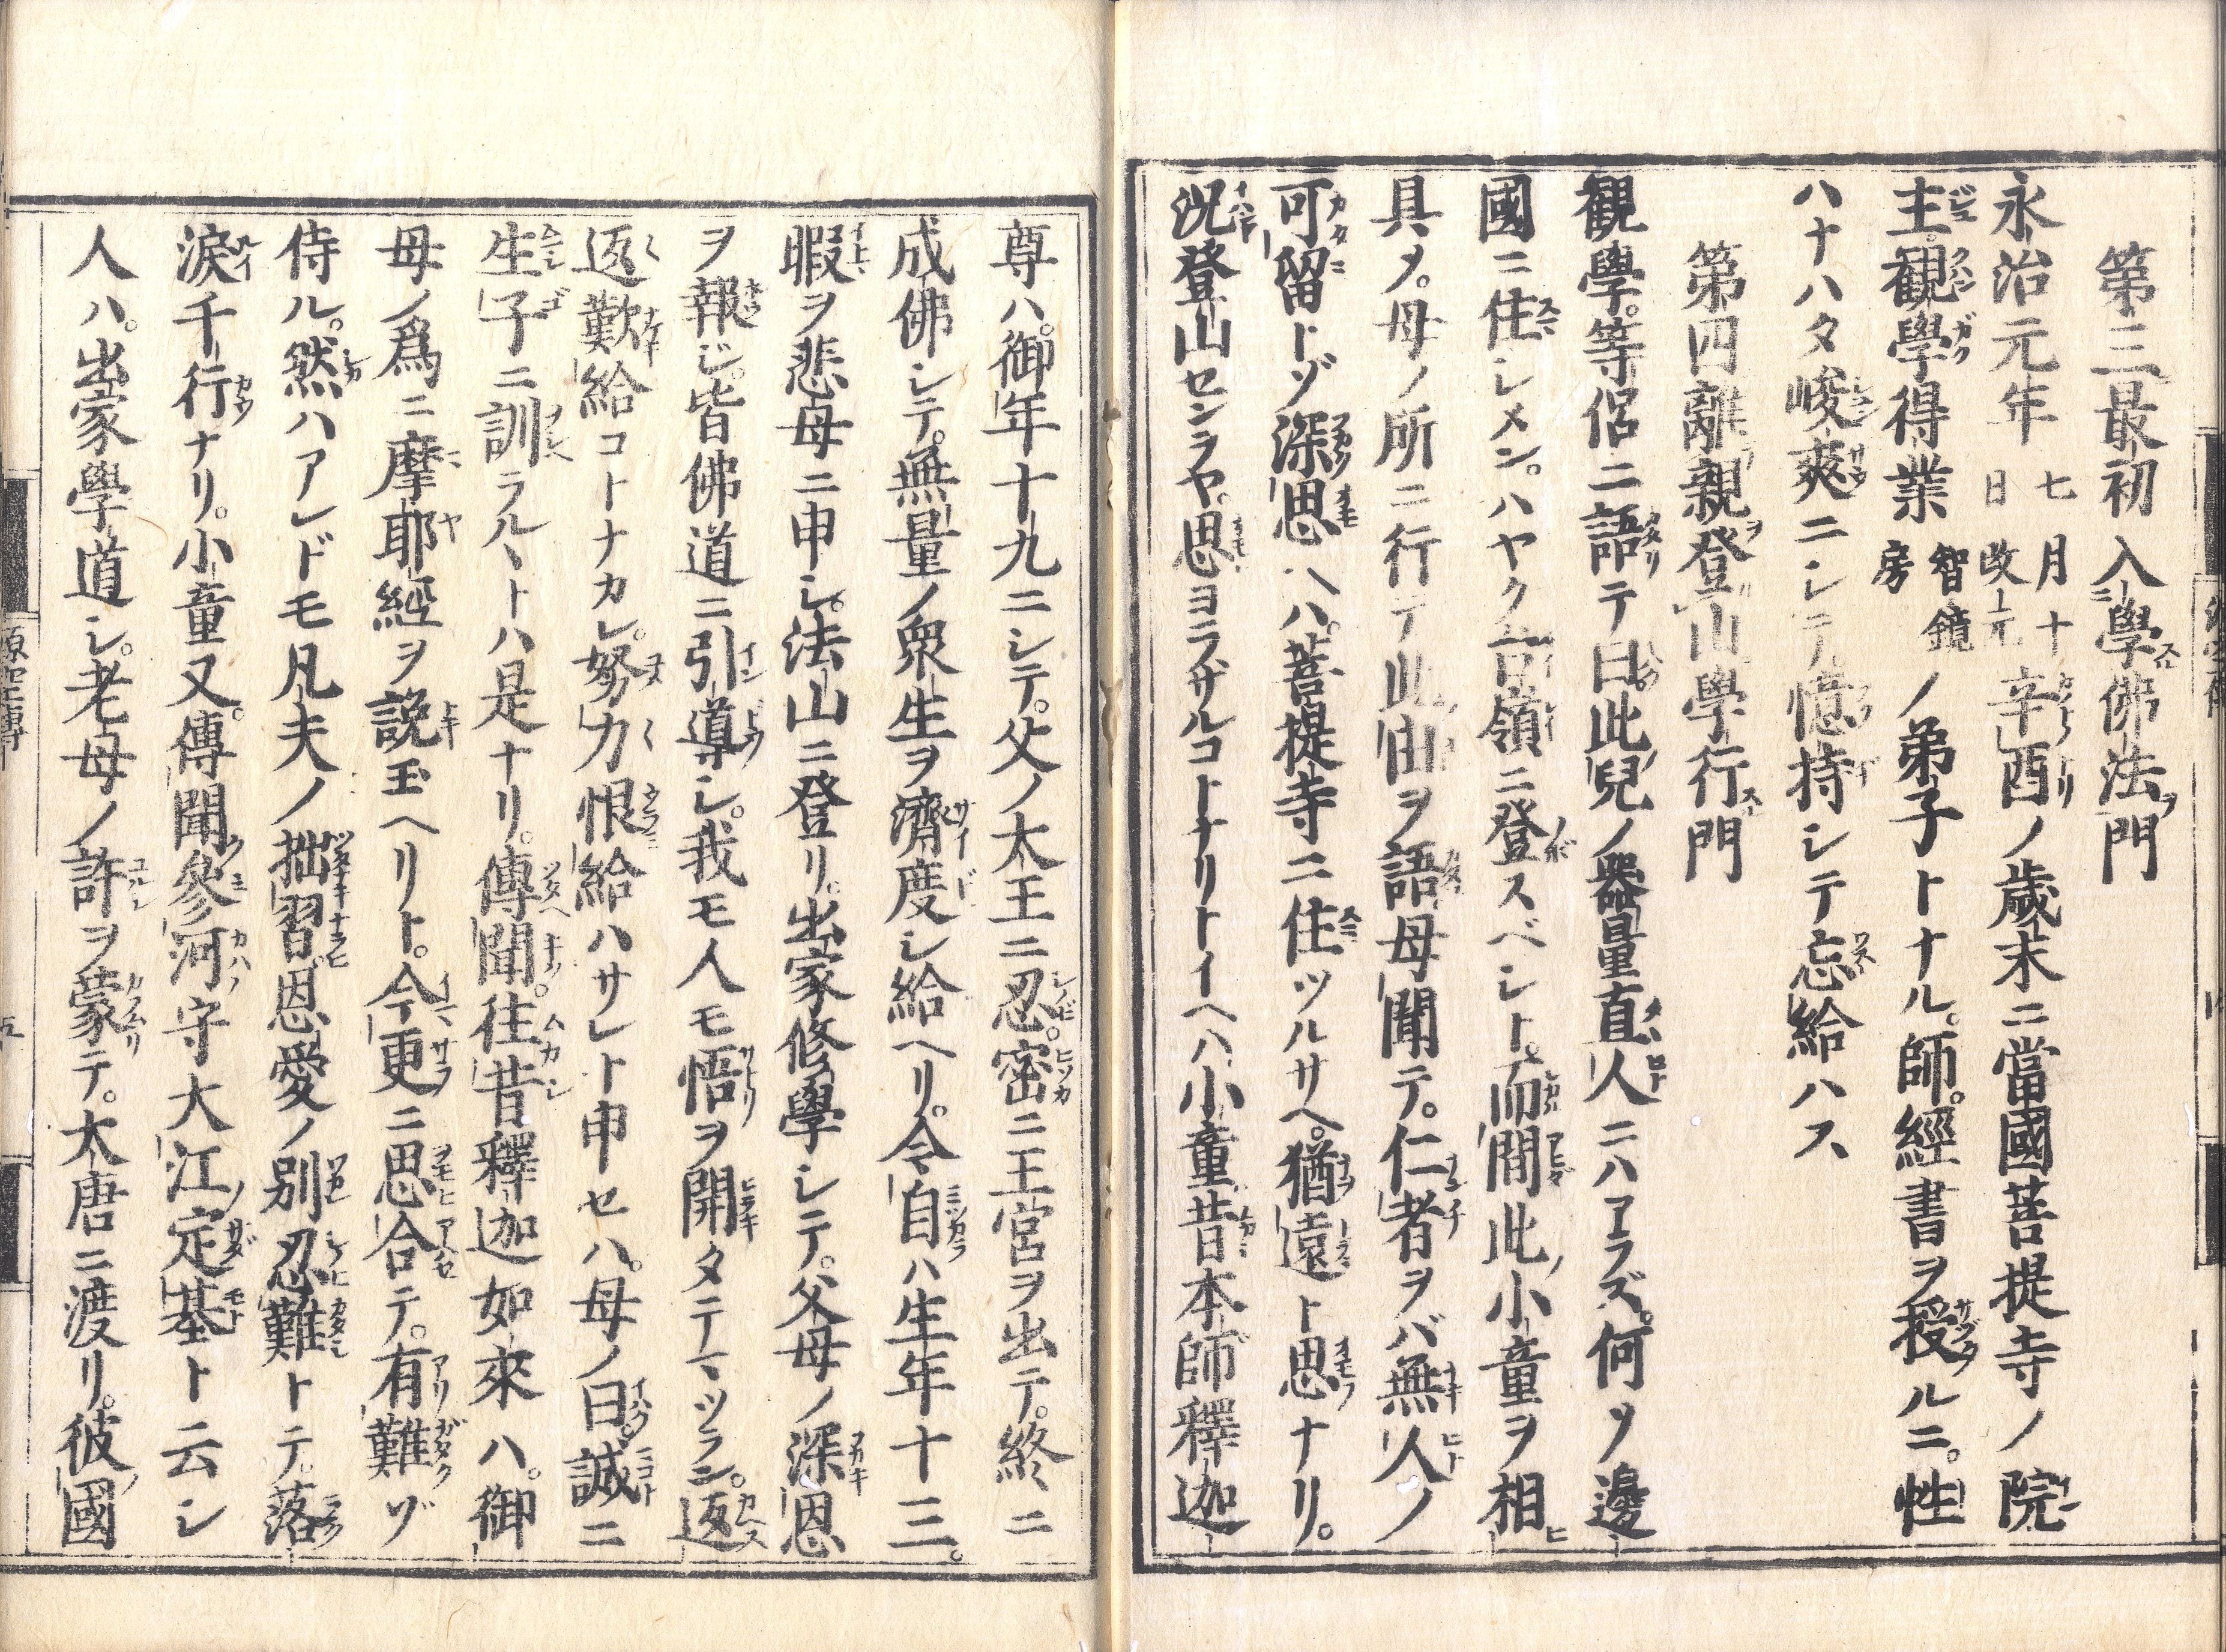 第三最初入學佛法門
永治元年七月十日改元辛酉ノ歳末ニ當國菩提寺ノ院
主。観學得業智鏡房ノ弟子トナル。師。經書ヲ授ルニ。性
ハナハタ峻爽ニシテ憶持シテ忘給ハス
第四離親登山學行門
観學。等侶ニ語テ曰。此兒ノ器量直人ニハアラズ。何ソ邊
國ニ住シメン。ハヤク台嶺ニ登スベシト。而間此小童ヲ相
具メ。母ノ所ニ行テ此由ヲ語。母聞テ。仁者ヲバ無人ノ
可留トゾ深思ヘハ。菩提寺ニ住ツルサヘ。猶遠ト思ナリ。
况登山センヲヤ。思ヨラザルコトナリトイヘハ小童昔本師釋迦
尊ハ。御年十九ニシテ。父ノ大王ニ忍。密ニ王宮ヲ出テ。終ニ
成佛シテ。無量ノ衆生ヲ濟度シ給ヘリ。今自ハ生年十三。
暇ヲ悲母ニ申シ。法山ニ登リ。出家修學シテ。父母ノ深恩
ヲ報ジ。皆佛道ニ引導シ。我モ人モ悟ヲ開タテマツラン。返
返歎給コトナカレ。努力恨給ハサレト申セハ。母ノ曰。誠ニ
生子ニ訓ラルヽトハ是ナリ。傳聞。往昔釋迦如來ハ。御
母ノ爲ニ摩耶經ヲ説玉ヘリト。今更ニ思合テ。有難ゾ
侍ル。然ハアレドモ凡夫ノ拙習。恩愛ノ別忍難トテ。落
淚千行ナリ。小童又。傳聞參河守大江定基ト云シ
人ハ。出家學道シ。老母ノ許ヲ蒙テ。太唐ニ渡リ。彼國
源空傳
五